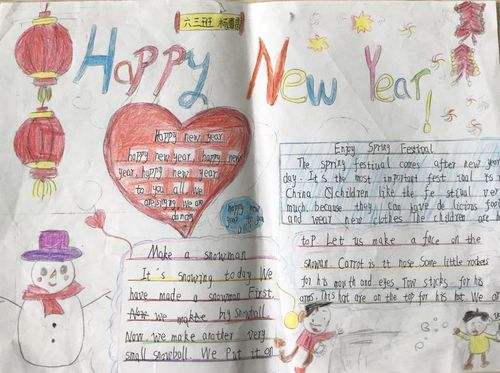 六三班
Happy New Year!
Happy new year
happy new year, happy new
year, happy new year
to you all we
are singing we are
dancing
happy new
Enjoy Spring Festival
The spring festival comes after new year
day. It's the most important
China. Children like the
much. because they can have
and wear new clothes. The children are
Make a snowman
It's snowing today. We
have made a snowman First,
we make big snowball
Now we make another very
small snowball. We Put it on
top Let us make a face on the
Carrot is it nose. Some little
for his mouth and eyes. Tow sticks for his
arms. hat are on the top for his hat We